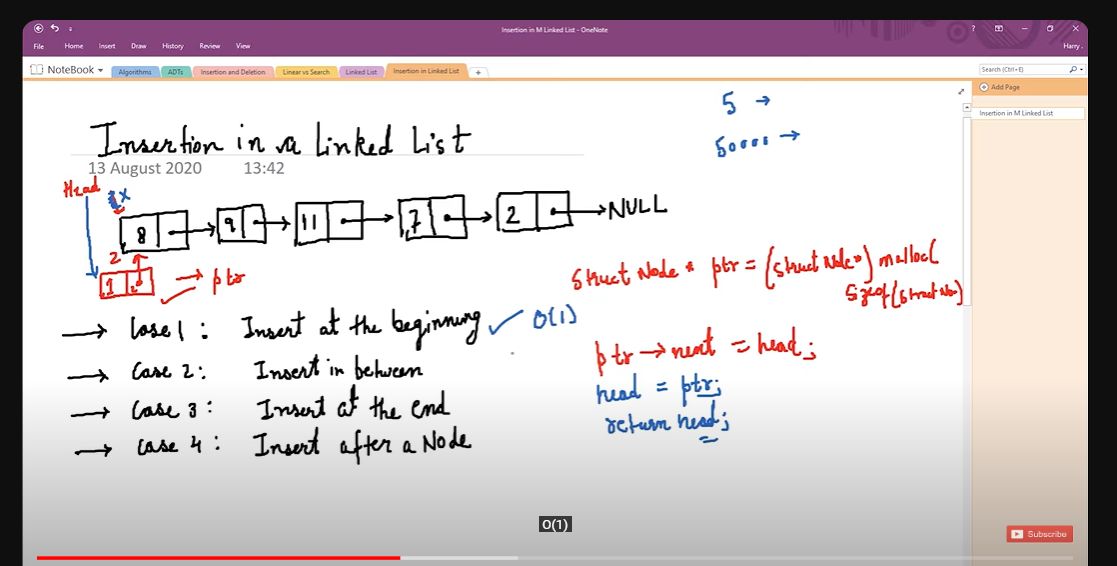 Insertion in M Linked List - OneNote
File Home Insert Draw History Review View
Harry .
NoteBook
Algorithms ADTs Insertion and Deletion Linear vs Search Linked List Insertion in Linked List
Search (Ctrl+E)
Add Page
Insertion in M Linked List
5 →
50000 →
Insertion in a Linked List
13 August 2020 13:42
Head
8 9 11 7 2 → NULL
2
1 → ptr
struct Node * ptr = (struct Node*) malloc(
sizeof(struct No)
→ Case 1 : Insert at the beginning ✓ O(1)
→ Case 2 : Insert in between
→ Case 3 : Insert at the end
→ Case 4 : Insert after a Node
ptr → next = head;
head = ptr;
return head;
O(1)
Subscribe